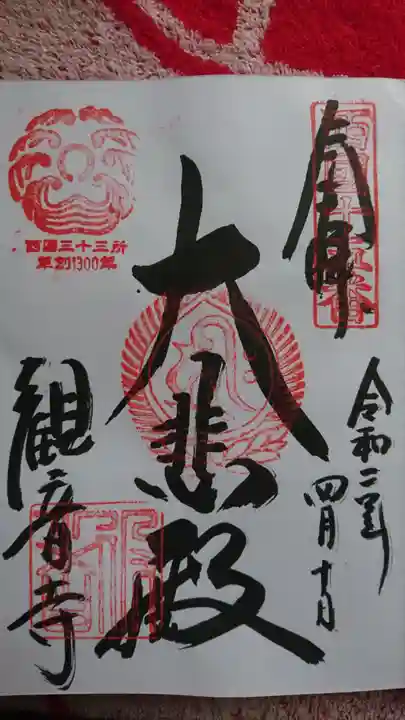 奉拝
西国十五番
令和二年
四月十日
大悲殿
西国三十三所
草創1300年
観音寺